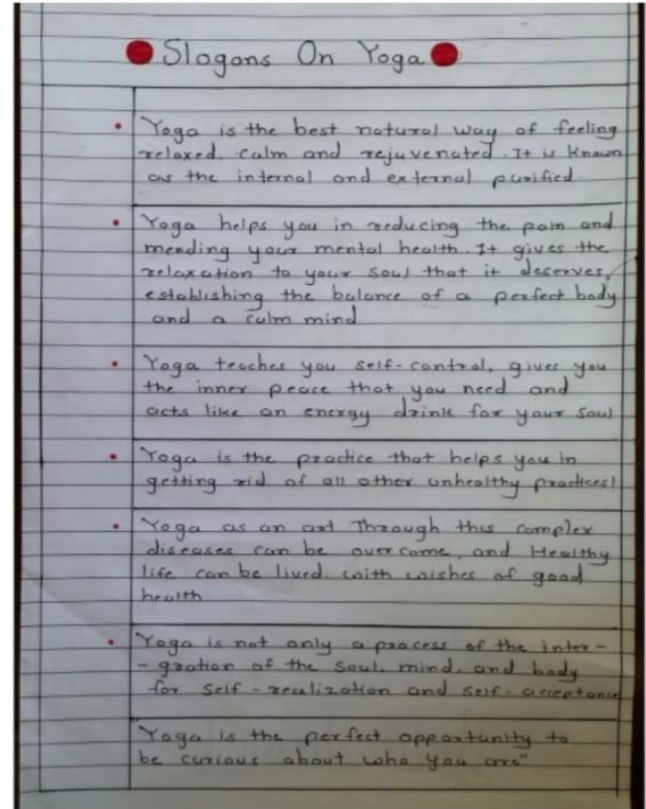 Slogans On Yoga
Yoga is the best natural way of feeling
relaxed, calm and rejuvenated. It is Known
as the internal and external purified.
Yoga helps you in reducing the pain and
mending your mental health. It gives the
relaxation to your soul that it deserves,
establishing the balance of a perfect body
and a calm mind
Yoga teaches you self-control, gives you
the inner peace that you need and
acts like an energy drink for your soul
Yoga is the practice that helps you in
getting rid of all other unhealthy practices!
Yoga as an art Through this complex
diseases can be overcome, and Healthy
life can be lived with wishes of good
health
Yoga is not only a process of the inter-
-gration of the soul, mind, and body
for self-realization and self-acceptance
Yoga is the perfect opportunity to
be curious about who you are"